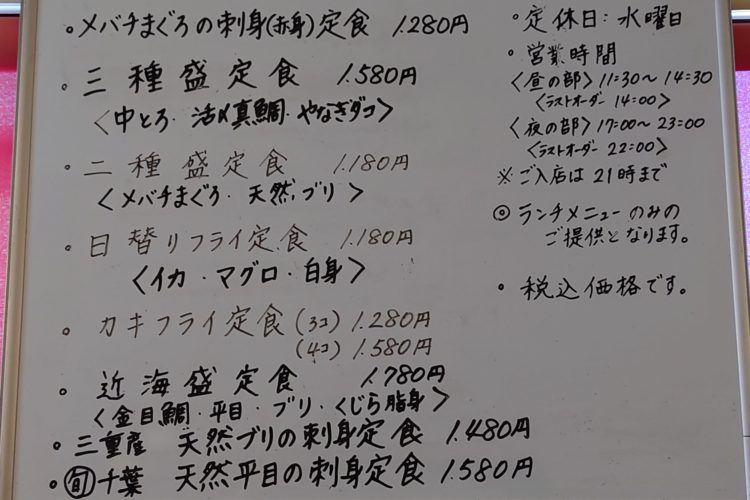 ・メバチまぐろの刺身(赤身)定食 1.280円
・三種盛定食 1.580円
〈中とろ・活〆真鯛・やなぎダコ〉
・二種盛定食 1.180円
〈メバチまぐろ・天然ブリ〉
・日替りフライ定食 1.180円
〈イカ・マグロ・白身〉
・カキフライ定食(3コ) 1.280円
(4コ) 1.580円
・近海盛定食 1.780円
〈金目鯛・平目・ブリ・くじら脂身〉
・三重産 天然ブリの刺身定食 1.480円
・旬千葉 天然平目の刺身定食 1.580円
・定休日:水曜日
・営業時間
〈昼の部〉11:30〜14:30
〈ラストオーダー 14:00〉
〈夜の部〉17:00〜23:00
〈ラストオーダー 22:00〉
※ご入店は21時まで
◎ランチメニューのみの
ご提供となります。
・税込価格です。